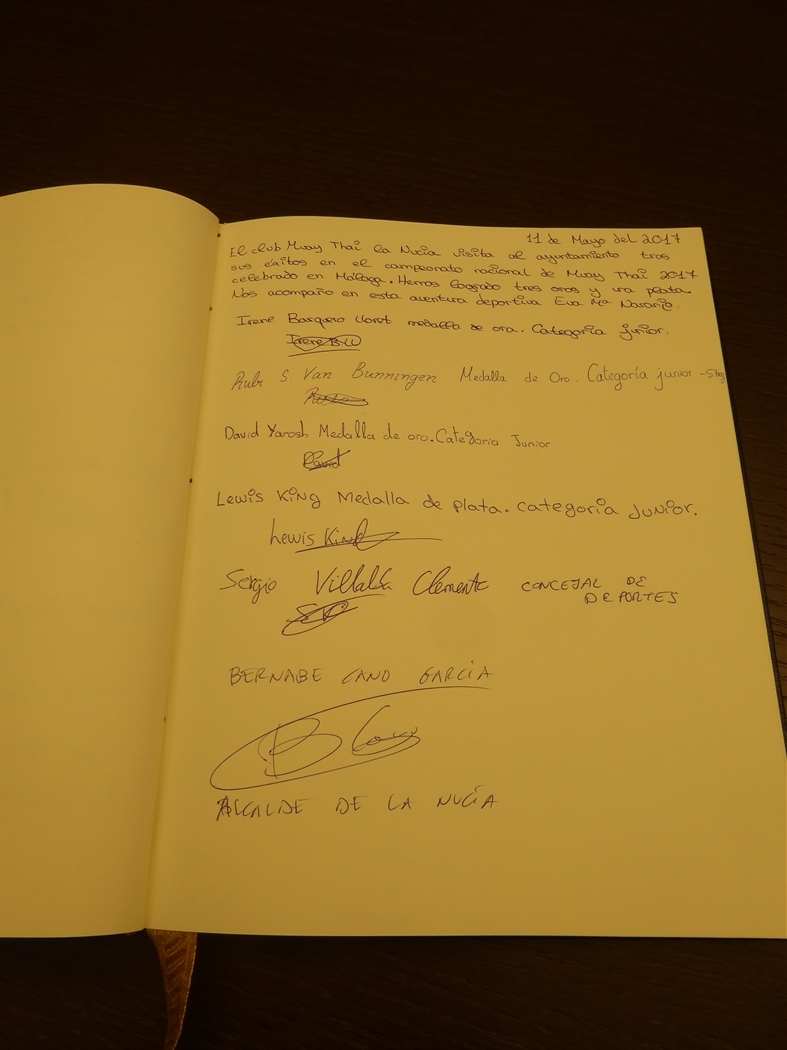 11 de Mayo del 2017
El club Muay Thai la Nucia visita al ayuntamiento tras
sus éxitos en el campeonato nacional de Muay Thai 2017
celebrado en Málaga. Hemos logrado tres oros y una plata.
Nos acompaño en esta aventura deportiva Eva Mª Naranjo.
Irene Barquero Lloret medalla de oro. Categoría junior.
Irene B.Ll
Rubi S. Van Bunningen Medalla de Oro. Categoría junior
David Yarosh Medalla de oro. Categoria Junior
David
Lewis King Medalla de plata. categoria JUNIOR.
Lewis King
Sergio Villalba Clemente CONCEJAL DE
DEPORTES
BERNABE CANO GARCÍA
B Cano
ALCALDE DE LA NUCÍA